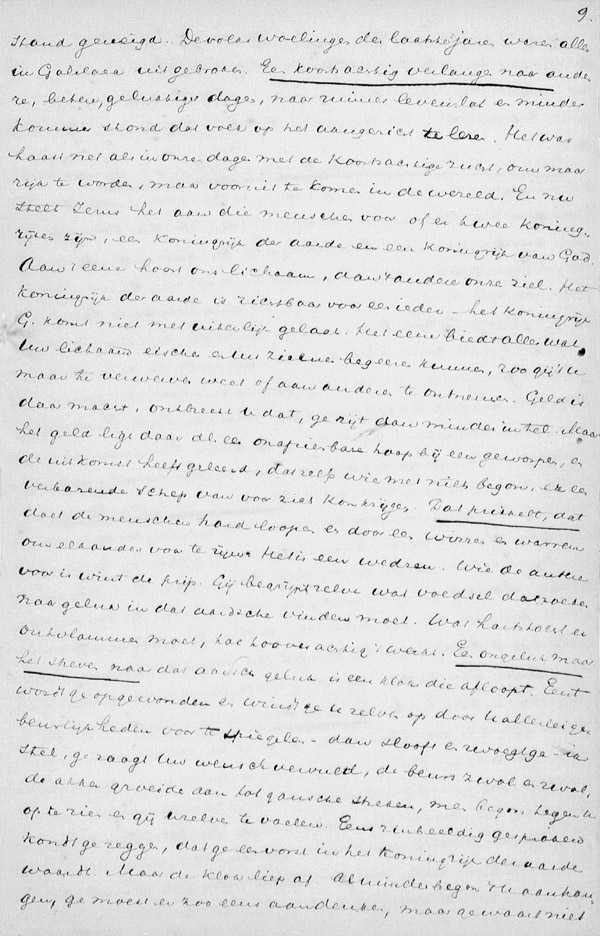 9.
stand geneigd. De volks woelingen der laatste jaren waren allen
in Galilaea uitgebroken. Een koortsachtig verlangen naar ande-
re, betere, gelukkiger dagen, naar ruimer levenslot en minder
kommer stond dat volk op het aangezicht te lezen. Het was
haast net als in onze dagen met de koortsachtige zucht, om maar
rijk te worden, maar vooruit te komen in de wereld. En nu
stelt Jezus het aan die menschen voor of er twee koning-
rijken zijn, een koningrijk der aarde en een koningrijk van God.
Aan 't eene hoort ons lichaam, aan 't andere onze ziel. Het
koningrijk der aarde is zichtbaar voor een ieder – het koningrijk
G. komt niet met uiterlijk gelaat. Het eene biedt alles wat
Uw lichaam eischen en Uw zinnen begeeren kunnen, zoo gij 't u
maar te verwerven weet of aan anderen te ontnemen. Geld is
daar macht, ontbreekt u dat, ge zijt dan minder in tel. Maar
het geld ligt daar dl. een onafzienbare hoop bijeen geworpen, en
de uitkomst heeft geleerd, dat zelfs wie met niets begon, er een
verbazende schep van voor zich kon krijgen. Dat prikkelt, dat
doet de menschen hard loopen en door een wirren en warren
om elkander voor te zijn. Het is een wedren. Wie de ander
voor is wint de prijs. Gij begrijpt zelve wat voedsel dat zoeken
naar geluk in dat aardsche vinden moet. Wat hartstocht er
ontvlammen moet, hoe koortsachtig 't werkt. En ongeluk maar
het streven naar dat aardsch geluk is een klok die afloopt. Eerst
wordt ge opgewonden en windt ge u zelven op door U allerlei ge-
beurlijkheden voor te spiegelen – dan slooft en zwoegt ge – in
stilt, ge zaagt Uw wensch vervuld, de beurs zwol en zwol,
de akker groeide aan tot gansche streken, men begon tegen U
op te zien en gij Uzelve te voelen. Eens zinbeeldig gesproken
kondt ge zeggen, dat ge een vorst in het koningrijk der aarde
waardt. Maar de klok liep af. Al minder begon 't U aan han-
gen, ge moest er zoo eens aan denken, maar ge waart niet